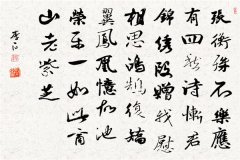 張衡殊不樂應
有四愁詩慚君
錦繡段贈我慰
相思鴻鵠復矯
翼鳳凰憶故池
榮樂一如此商
山老紫芝